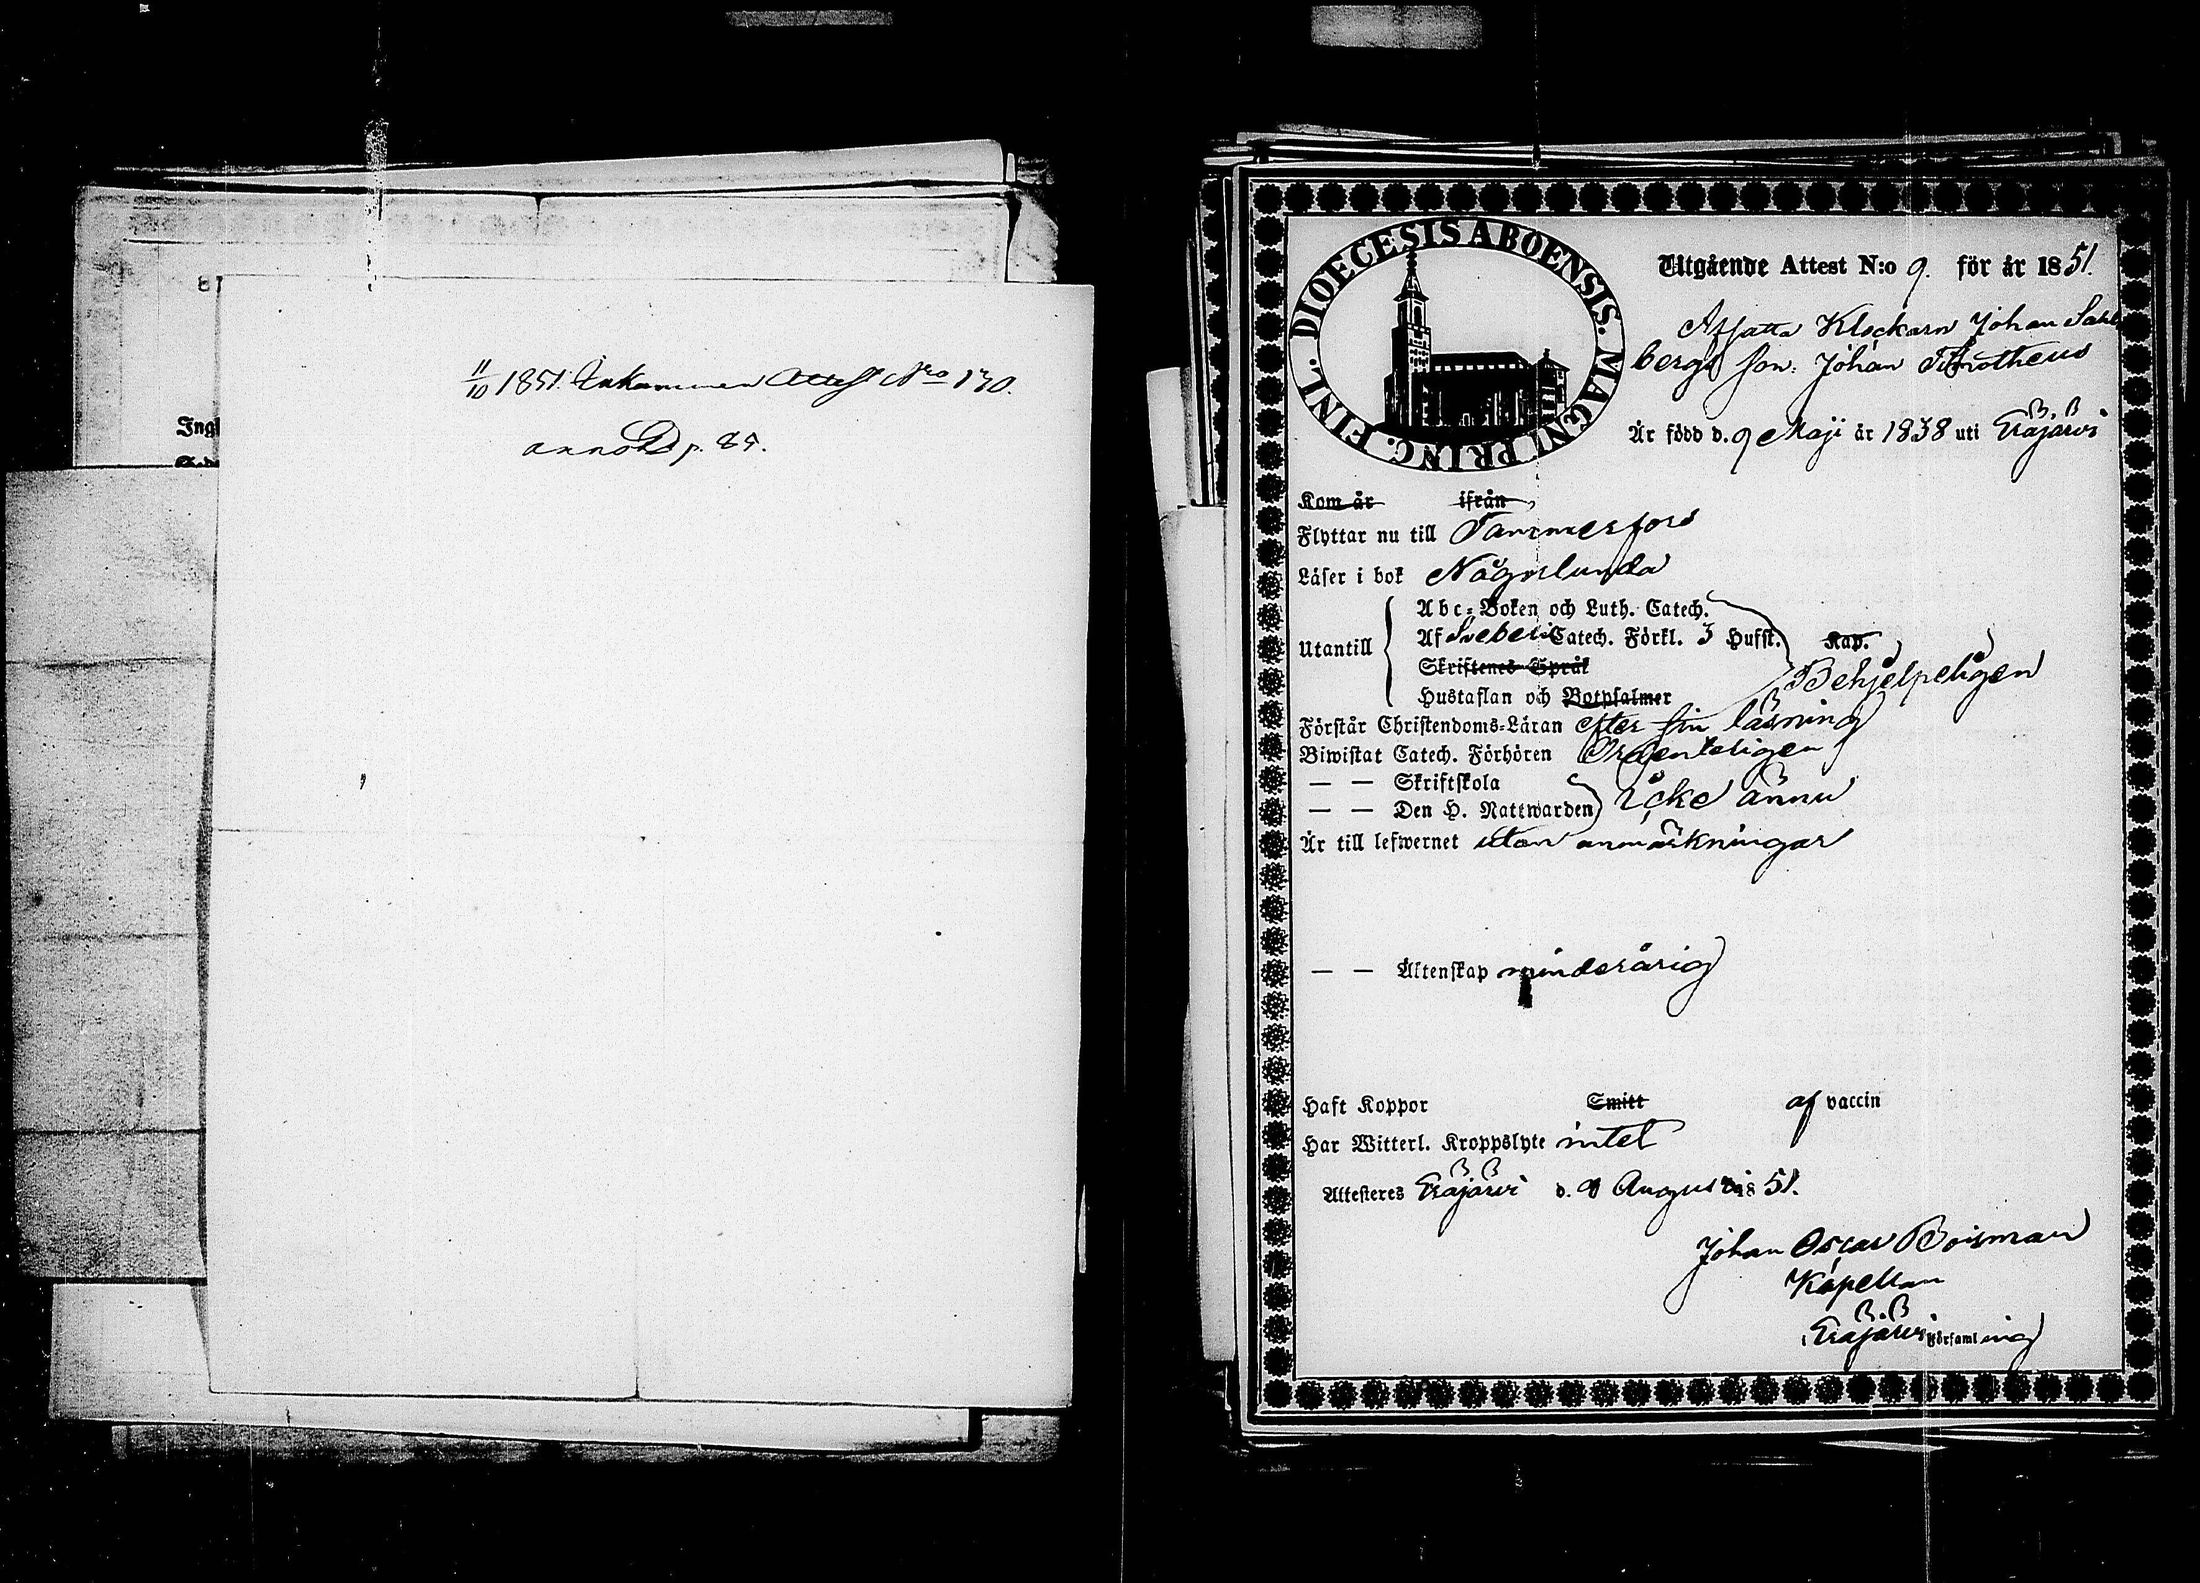 11/10 1851. Inkommen Attest Nro 130.
annot. D p. 85.
Ing
DIOECESIS ABOENSIS. MAGNI PRINC. FINL.
Utgående Attest N:o 9. för år 1851.
Afsatta Klockarn Johan Sahl
bergs son: Johan Timotheus
Är född d. 9 Maji år 1838 uti Eräjärvi
Kom år ifrån
Flyttar nu till Tammerfors
Läser i bok Någorlunda
Utantill
Abc-Boken och Luth. Catech.
Af Svebelii Catech. Förkl. 3 Hufst. Kap.
Skriftenes Språk
Behjelpeligen
Hustaflan och Botpsalmer
Förstår Christendoms-Läran efter sin läsning
Biwistat Catech. Förhören Ordenteligen
— — Skriftskola
— — Den H. Nattwarden icke ännu
Är till lefwernet utan anmärkningar
— — Äktenskap minderårig
Haft Koppor Smitt af vaccin
Har Witterl. Kroppslyte intet
Attesteras Eräjärvi d. 9 Augusti 1851.
Johan Oscar Boisman
Kapellan
i Eräjärvi Församling